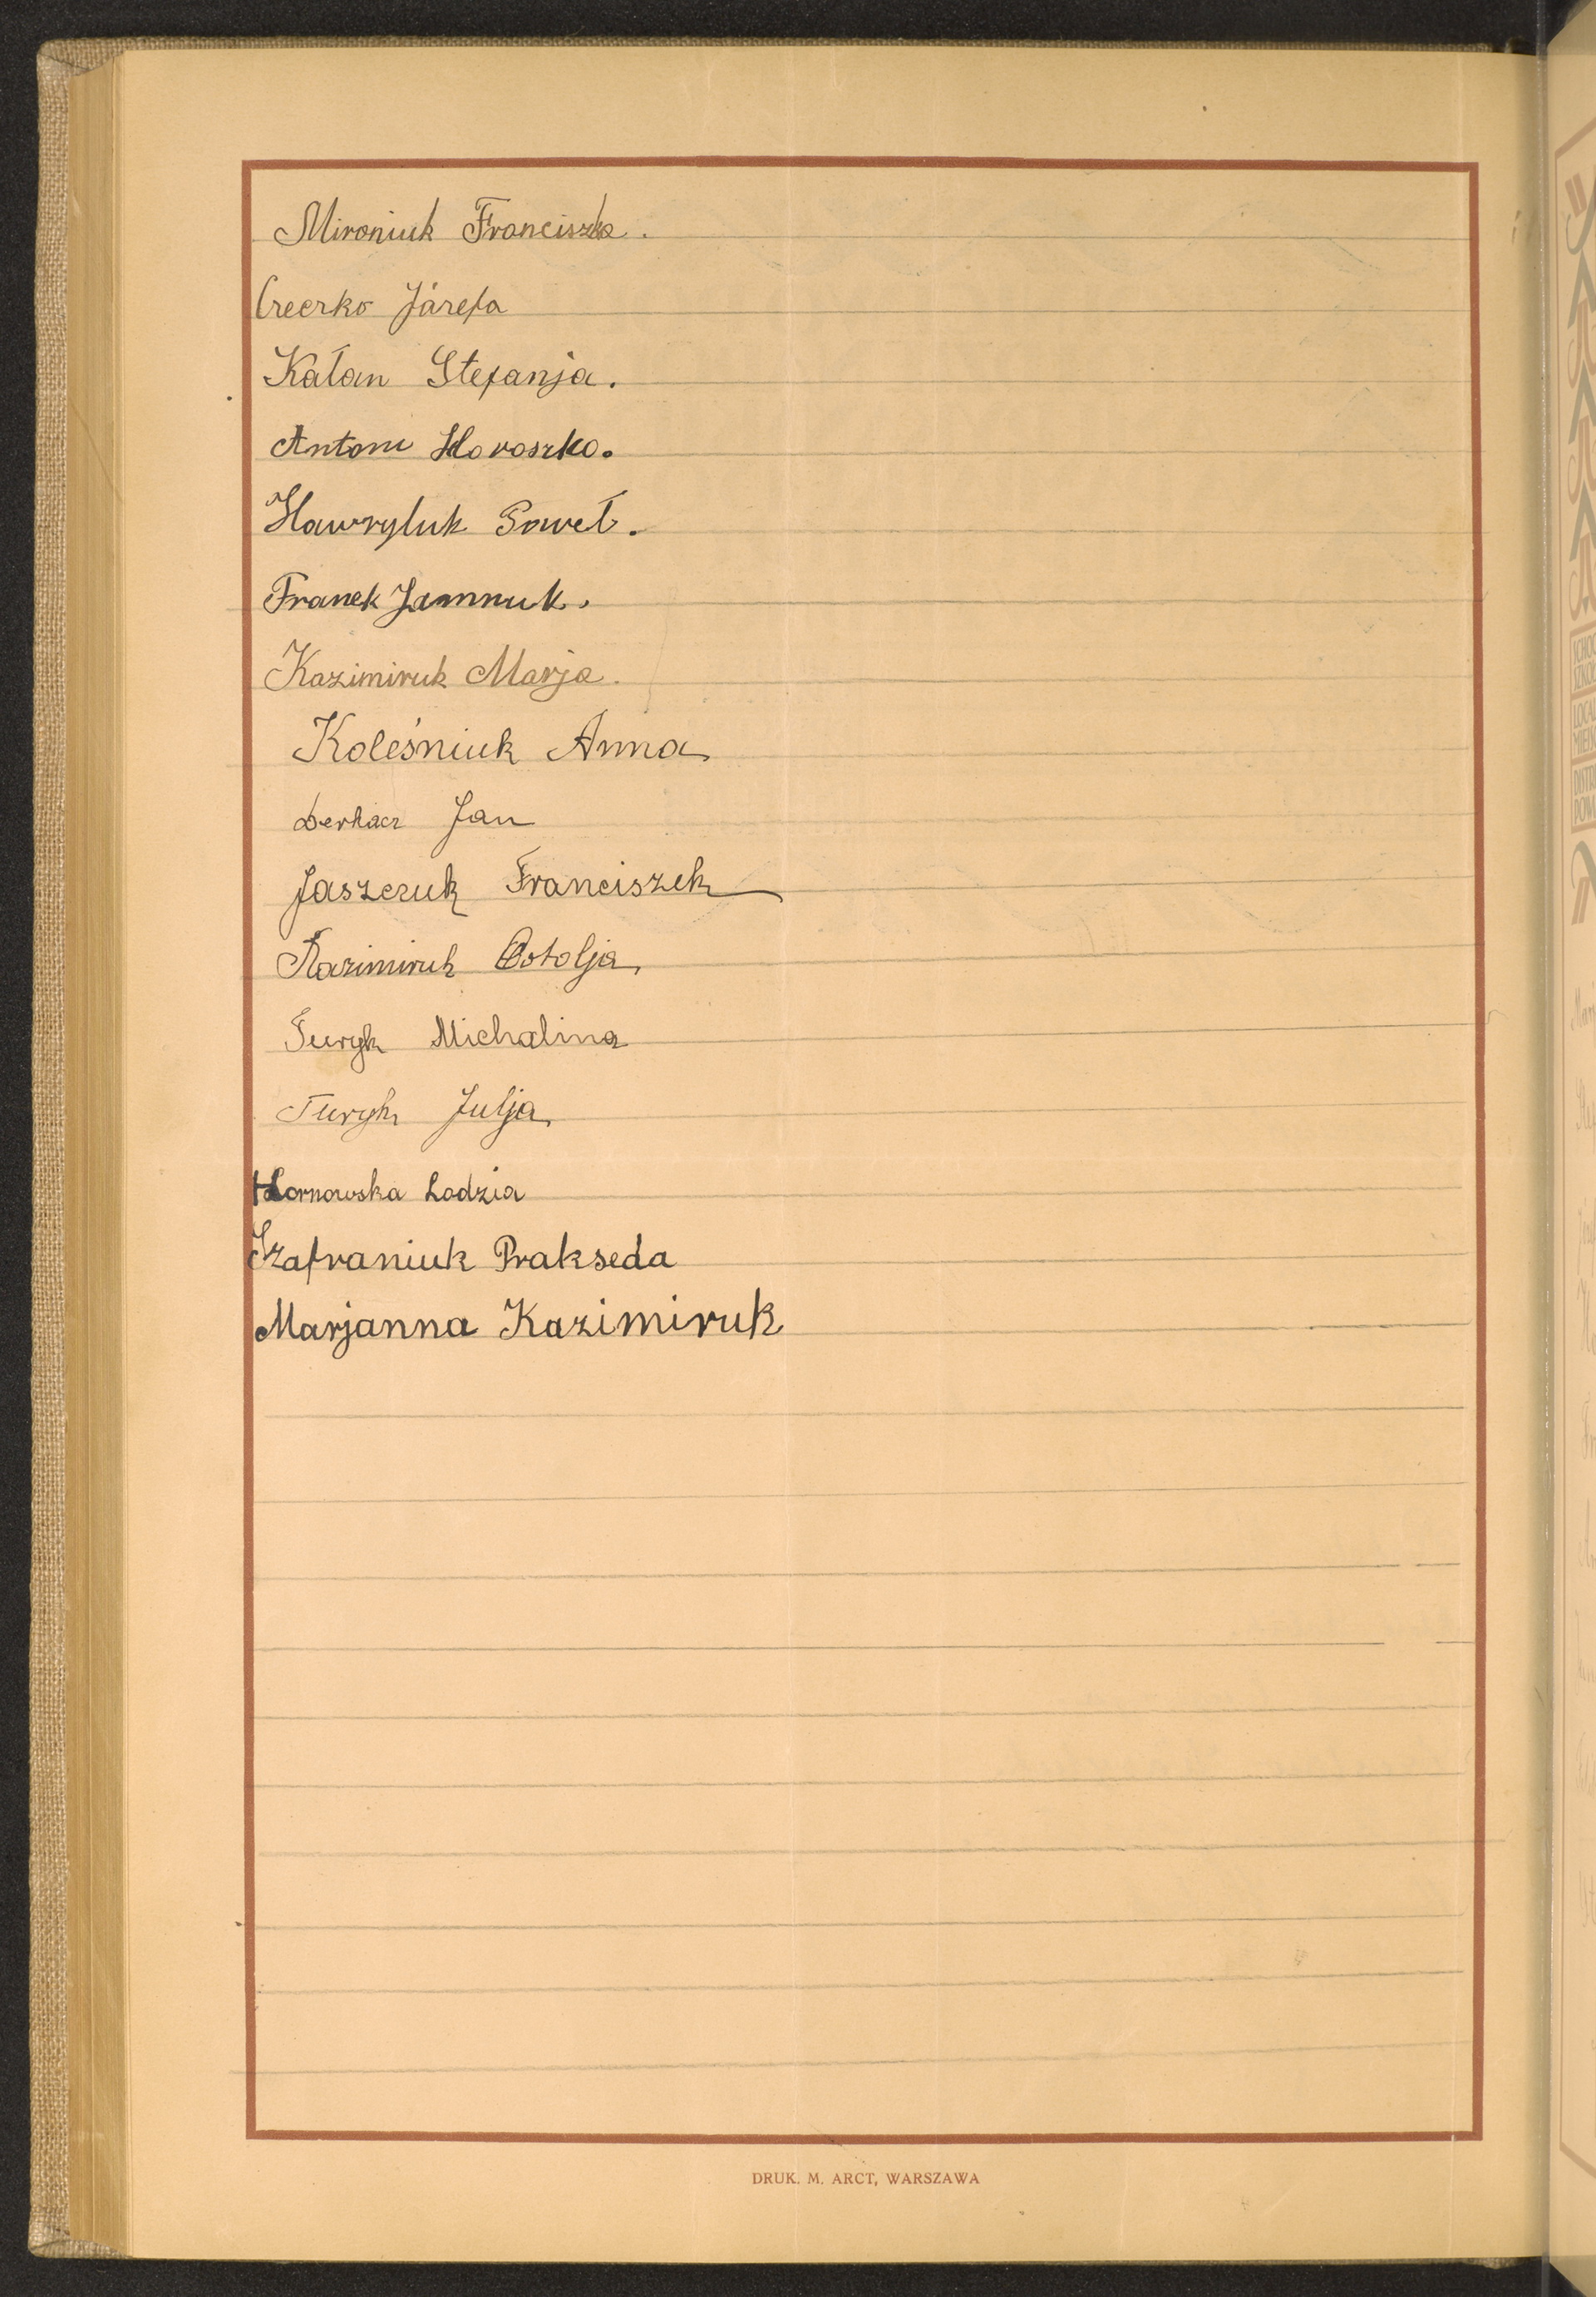 Mironiuk Franciszka.
Czeczko Józefa
Kałan Stefanja.
Antoni Horoszko.
Hawryluk Paweł.
Franek Jamnuk.
Kazimiruk Marja.
Koleśniuk Anna
Derkacz Jan
Jaszczuk Franciszek
Kazimiruk
Turyk Michalina
Turyk Julja
Hornowska Lodzia
Szafraniuk Prakseda
Marjanna Kazimiruk
DRUK. M. ARCT, WARSZAWA